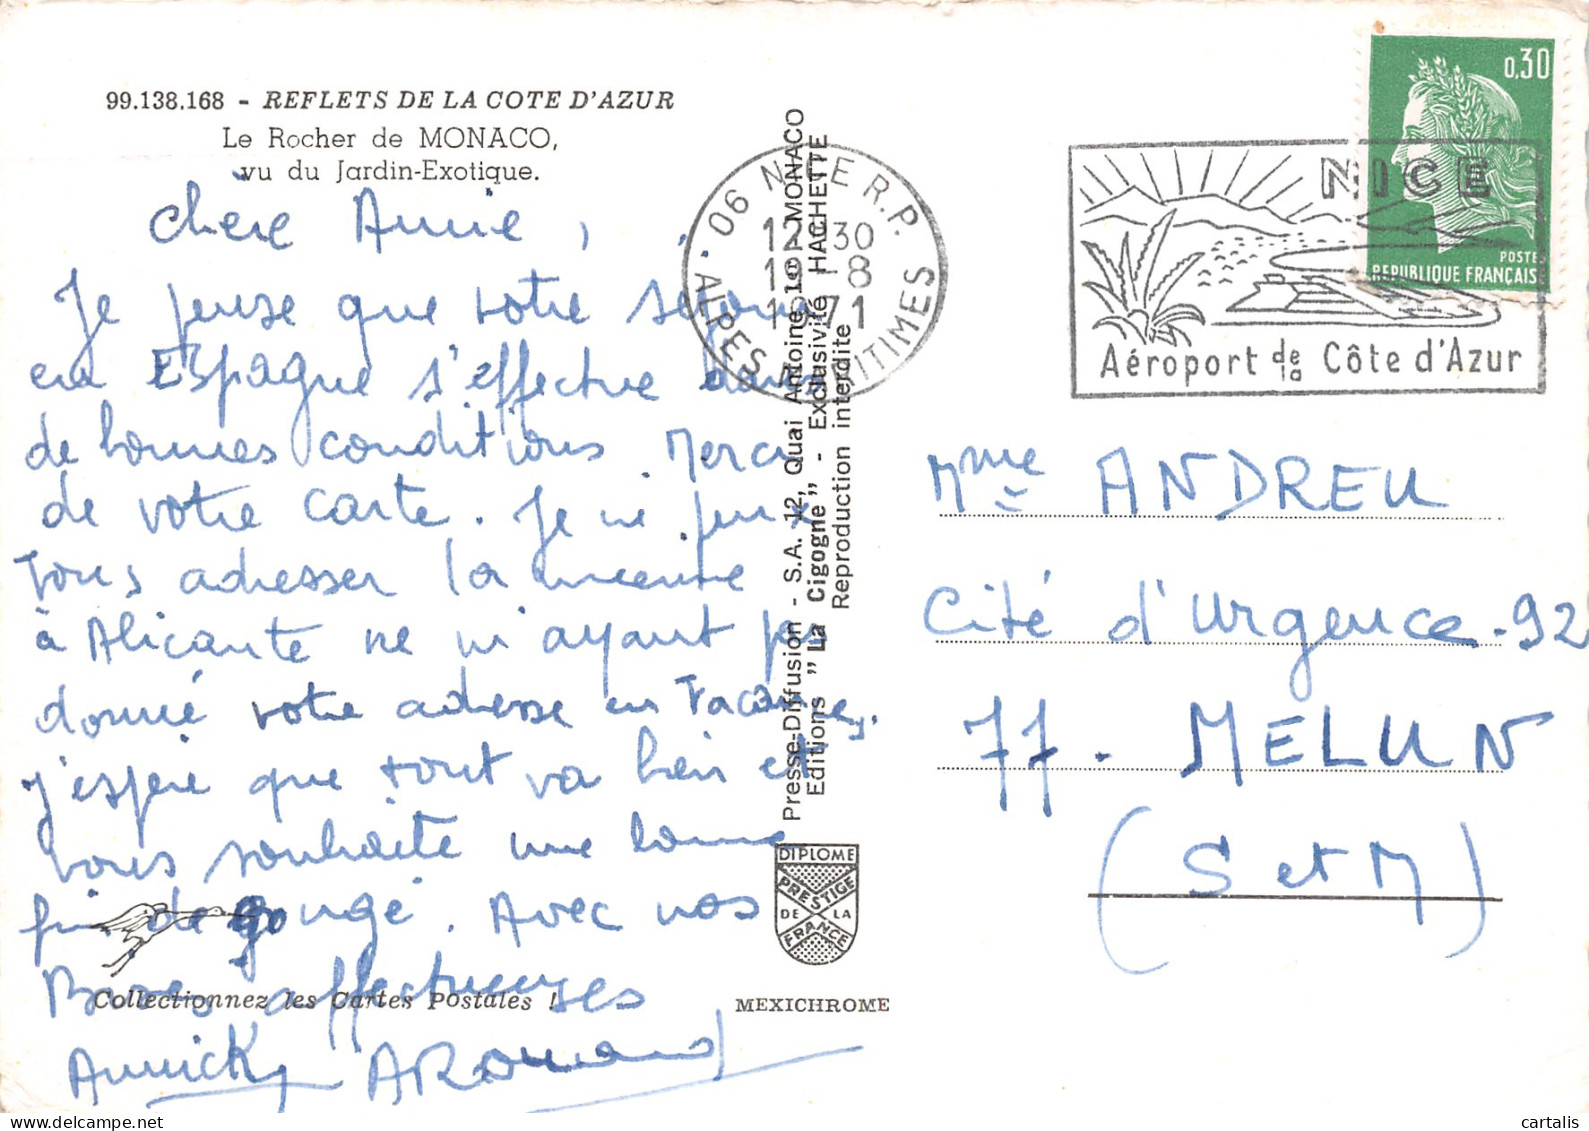 99.138.168 - REFLETS DE LA COTE D'AZUR
Le Rocher de MONACO,
vu du Jardin-Exotique.
Chère Annie,
Je pense que votre séjour
en Espagne s'effectue dans
de bonnes conditions Merci
de votre carte. Je ne peux
vous adresser la mienne
à Alicante ne m'ayant pas
donné votre adresse en vacances.
j'espère que tout va bien et
vous souhaite une bonne
fin de congé. Avec nos
affectueuses
Collectionnez les Cartes Postales !
Annick
Presse-Diffusion - S.A. 12, Quai Antoine 1er - MONACO
Editions "La Cigogne" - Exclusivité HACHETTE
Reproduction interdite
DIPLOME
PRESTIGE
DE LA
FRANCE
MEXICHROME
06 NICE R.P.
12 30
19 - 8
1971
ALPES MARITIMES
NICE
Aéroport de la Côte d'Azur
0,30
POSTES
REPUBLIQUE FRANÇAISE
Mme ANDREU
Cité d'Urgence - 92
77 - MELUN
(S et M)
cartalis